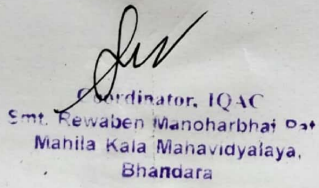 Coordinator, IQAC
Smt. Rewaben Manoharbhai Pat
Mahila Kala Mahavidyalaya,
Bhandara